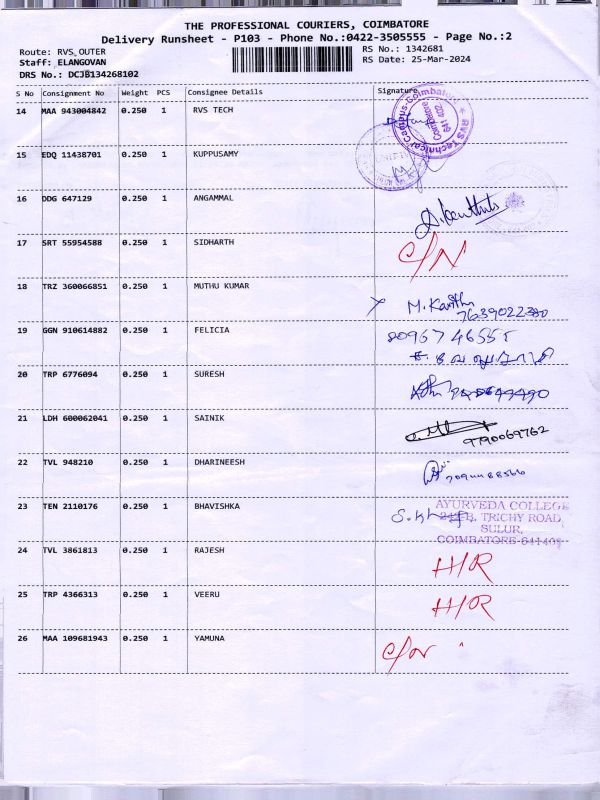 THE PROFESSIONAL COURIERS, COIMBATORE
Delivery Runsheet - P103 - Phone No.:0422-3505555 - Page No.:2
Route: RVS_OUTER
RS No.: 1342681
Staff: ELANGOVAN
RS Date: 25-Mar-2024
DRS No.: DCJB134268102
S No Consignment No Weight PCS Consignee Details Signature
14 MAA 943004842 0.250 1 RVS TECH
RVS Technical Campus-Coimbatore
Coimbatore
641 402
15 EDQ 11438701 0.250 1 KUPPUSAMY
16 DDG 647129 0.250 1 ANGAMMAL
17 SRT 55954588 0.250 1 SIDHARTH C/N
18 TRZ 360066851 0.250 1 MUTHU KUMAR M. Kanthi
7639022380
19 GGN 910614882 0.250 1 FELICIA 8096746555
20 TRP 6776094 0.250 1 SURESH
21 LDH 600062041 0.250 1 SAINIK
9790069762
22 TVL 948210 0.250 1 DHARINEESH
23 TEN 2110176 0.250 1 BHAVISHKA
AYURVEDA COLLEGE
TRICHY ROAD,
SULUR,
COIMBATORE
24 TVL 3861813 0.250 1 RAJESH H/R
25 TRP 4366313 0.250 1 VEERU H/R
26 MAA 109681943 0.250 1 YAMUNA